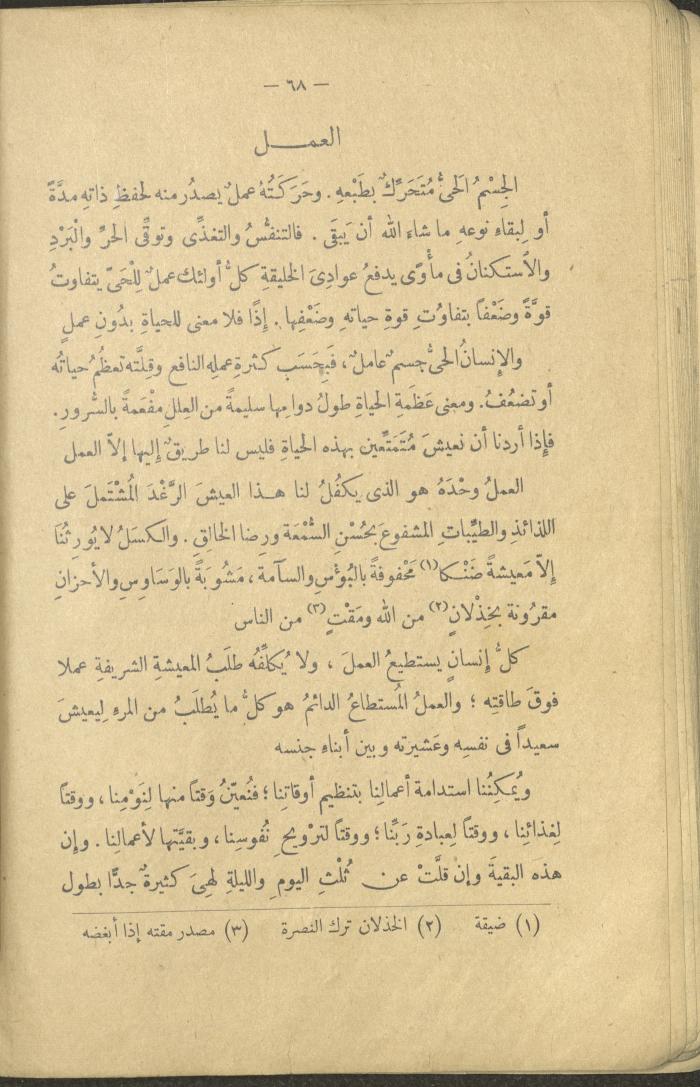 — ٦٨ —
العمــل
الجِسْمُ الحَىُّ مُتَحَرِّكٌ بطَبْعهِ . وحَرَكَتُهُ عملٌ يصدُر منه لحفظِ ذاتِهِ مدَّةً
أو لِبقاءِ نوعهِ ما شاء الله أن يَبقَى . فالتنفُّسُ والتغذِّى وتوقِّى الحرِّ والْبَرْدِ
والاستكنانُ فى مأْوًى يدفعُ عوادِىَ الخليقةِ كلُّ أوائك عملٌ لِلْحَىِّ يتفاوتُ
قوَّةً وضَعْفًا بتفاوُتِ قوةِ حياتهِ وضَعْفِها . إذًا فلا معنى للحياةِ بدُونِ عملٍ
والإنسانُ الحىُّ جسمٌ عاملٌ ، فَبِحَسَبِ كثرةِ عملِه النافع وقِلَّته تعظُمُ حياتُه
أو تضعُفُ. ومعنى عَظَمةِ الحياةِ طولُ دوامِها سليمةً من العِللِ مفْعَمةً بالسُّرورِ.
فإذا أردنا أن نعيشَ مُتَمَتِّعين بهذه الحياةِ فليس لنا طريقٌ إليها إلاّ العمل
العملُ وحْدَهُ هو الذى يكفُلُ لنا هــذا العيشَ الرَّغْدَ المُشْتَملَ على
اللذائذِ والطيِّباتِ المشفوعَ بحُسْنِ السُّمْعَة ورِضا الخالقِ . والكسَلُ لا يُورِثُنَا
إلاّ مَعيشةً ضَنْكا(١) مَحْفوفةً بالبُؤْسِ والسآمة ، مَشُوبَةً بالوَسَاوِسِ والأحزانِ
مقرُونة بخِذْلانٍ(٢) من الله ومَقْتٍ(٣) من الناس
كلُّ إنسانٍ يستطيعُ العملَ ، ولا يُكلِّفُه طلَبُ المعيشةِ الشريفةِ عملا
فوقَ طاقتِه ؛ والعملُ المُستطاعُ الدائمُ هو كلُّ ما يُطلَبُ من المرءِ لِيعيشَ
سعيداً فى نفسِه وعَشيرته وبين أبناءِ جنسه
ويُمكِنُنا استدامة أعمالِنا بتنظيم أوقاتِنا ؛ فنُعيِّنُ وَقتاً منها لِنَوْمِنا ، ووقتاً
لِغذائنا ، ووقتاً لِعبادةِ رَبِّنا ؛ ووقتاً لترْويحِ نُفوسِنا ، وبقيَّتها لأعمالِنا . وإن
هذه البقيةَ وإن قلَّتْ عن ثُلْثِ اليومِ والليلةِ لهِىَ كثيرةٌ جدًّا بطول
(١) ضيقة (٢) الخذلان ترك النصرة (٣) مصدر مقته إذا أبغضه